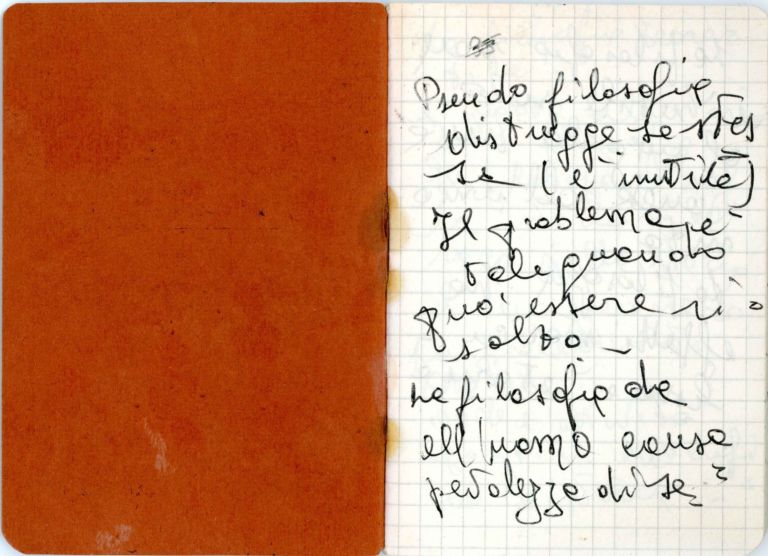 Pseudo filosofia
distrugge se stes
sa (è inutile)
Il problema è
tale quando
può essere ri=
solto –
La filosofia dà
all'uomo consa
pevolezza di sé